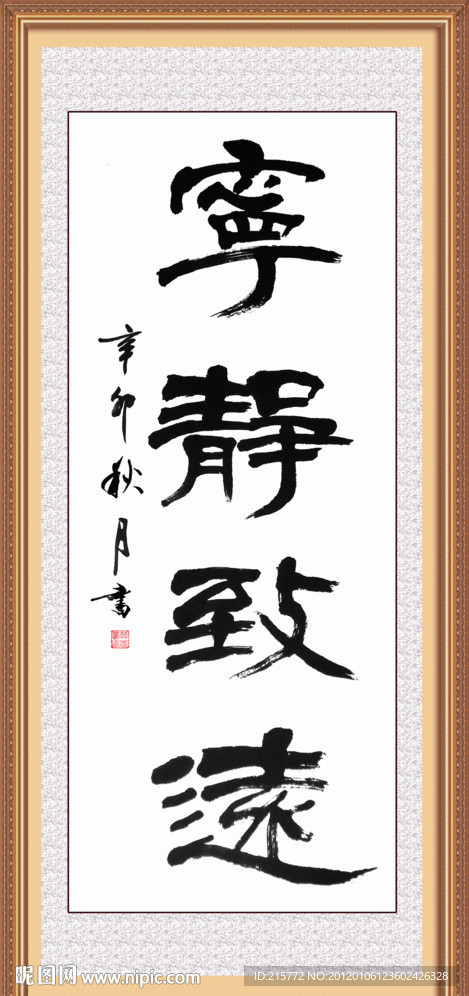 寧靜致遠
辛卯秋月書
昵图网 www.nipic.com
ID:215772 NO:20120106123602426328